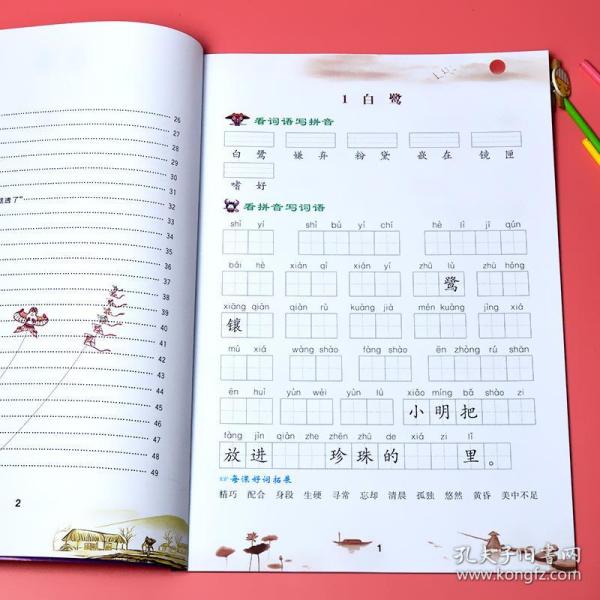 26
27
28
29
30
31
32
33
34
35
36
37
38
39
40
41
42
43
44
45
46
47
48
49
2
1 白 鹭
看词语写拼音
白 鹭 嫌 弃 粉 黛 嵌 在 镜 匣
嗜 好
看拼音写词语
shì yí shì bù yí chí hè lì jī qún
bái hè xián qì xián yí zhū lù zhū hóng
鹭
xiāng qiàn qiàn rù kuàng jiá mén kuàng jìng xiá
镶
mù xiá wàng shào fàng shào ēn zhòng rú shān
ēn huì yùn wèi yùn lù xiǎo míng bǎ shǎo zi
小 明 把
fàng jìn qiàn zhe zhēn zhū de xiá zi lǐ
放 进 珍 珠 的 里 。
每课好词拓展
精巧 配合 身段 生硬 寻常 忘却 清晨 孤独 悠然 黄昏 美中不足
1
孔夫子旧书网
www.kongfz.com